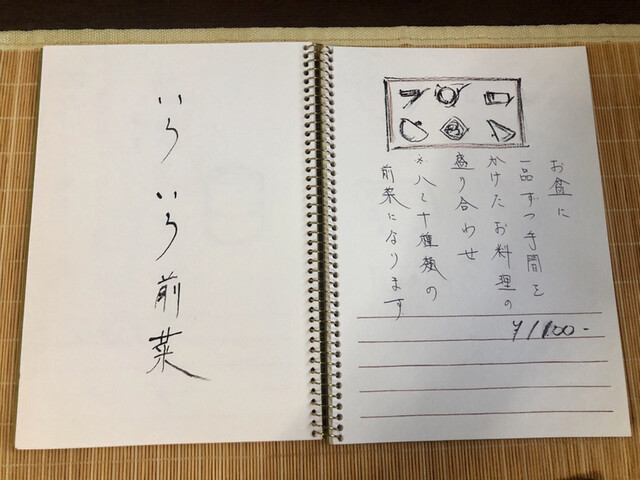 いろいろ前菜
お盆に
一品ずつ手間を
かけたお料理の
盛り合わせ
*八〜十種類の
前菜になります
¥1100-